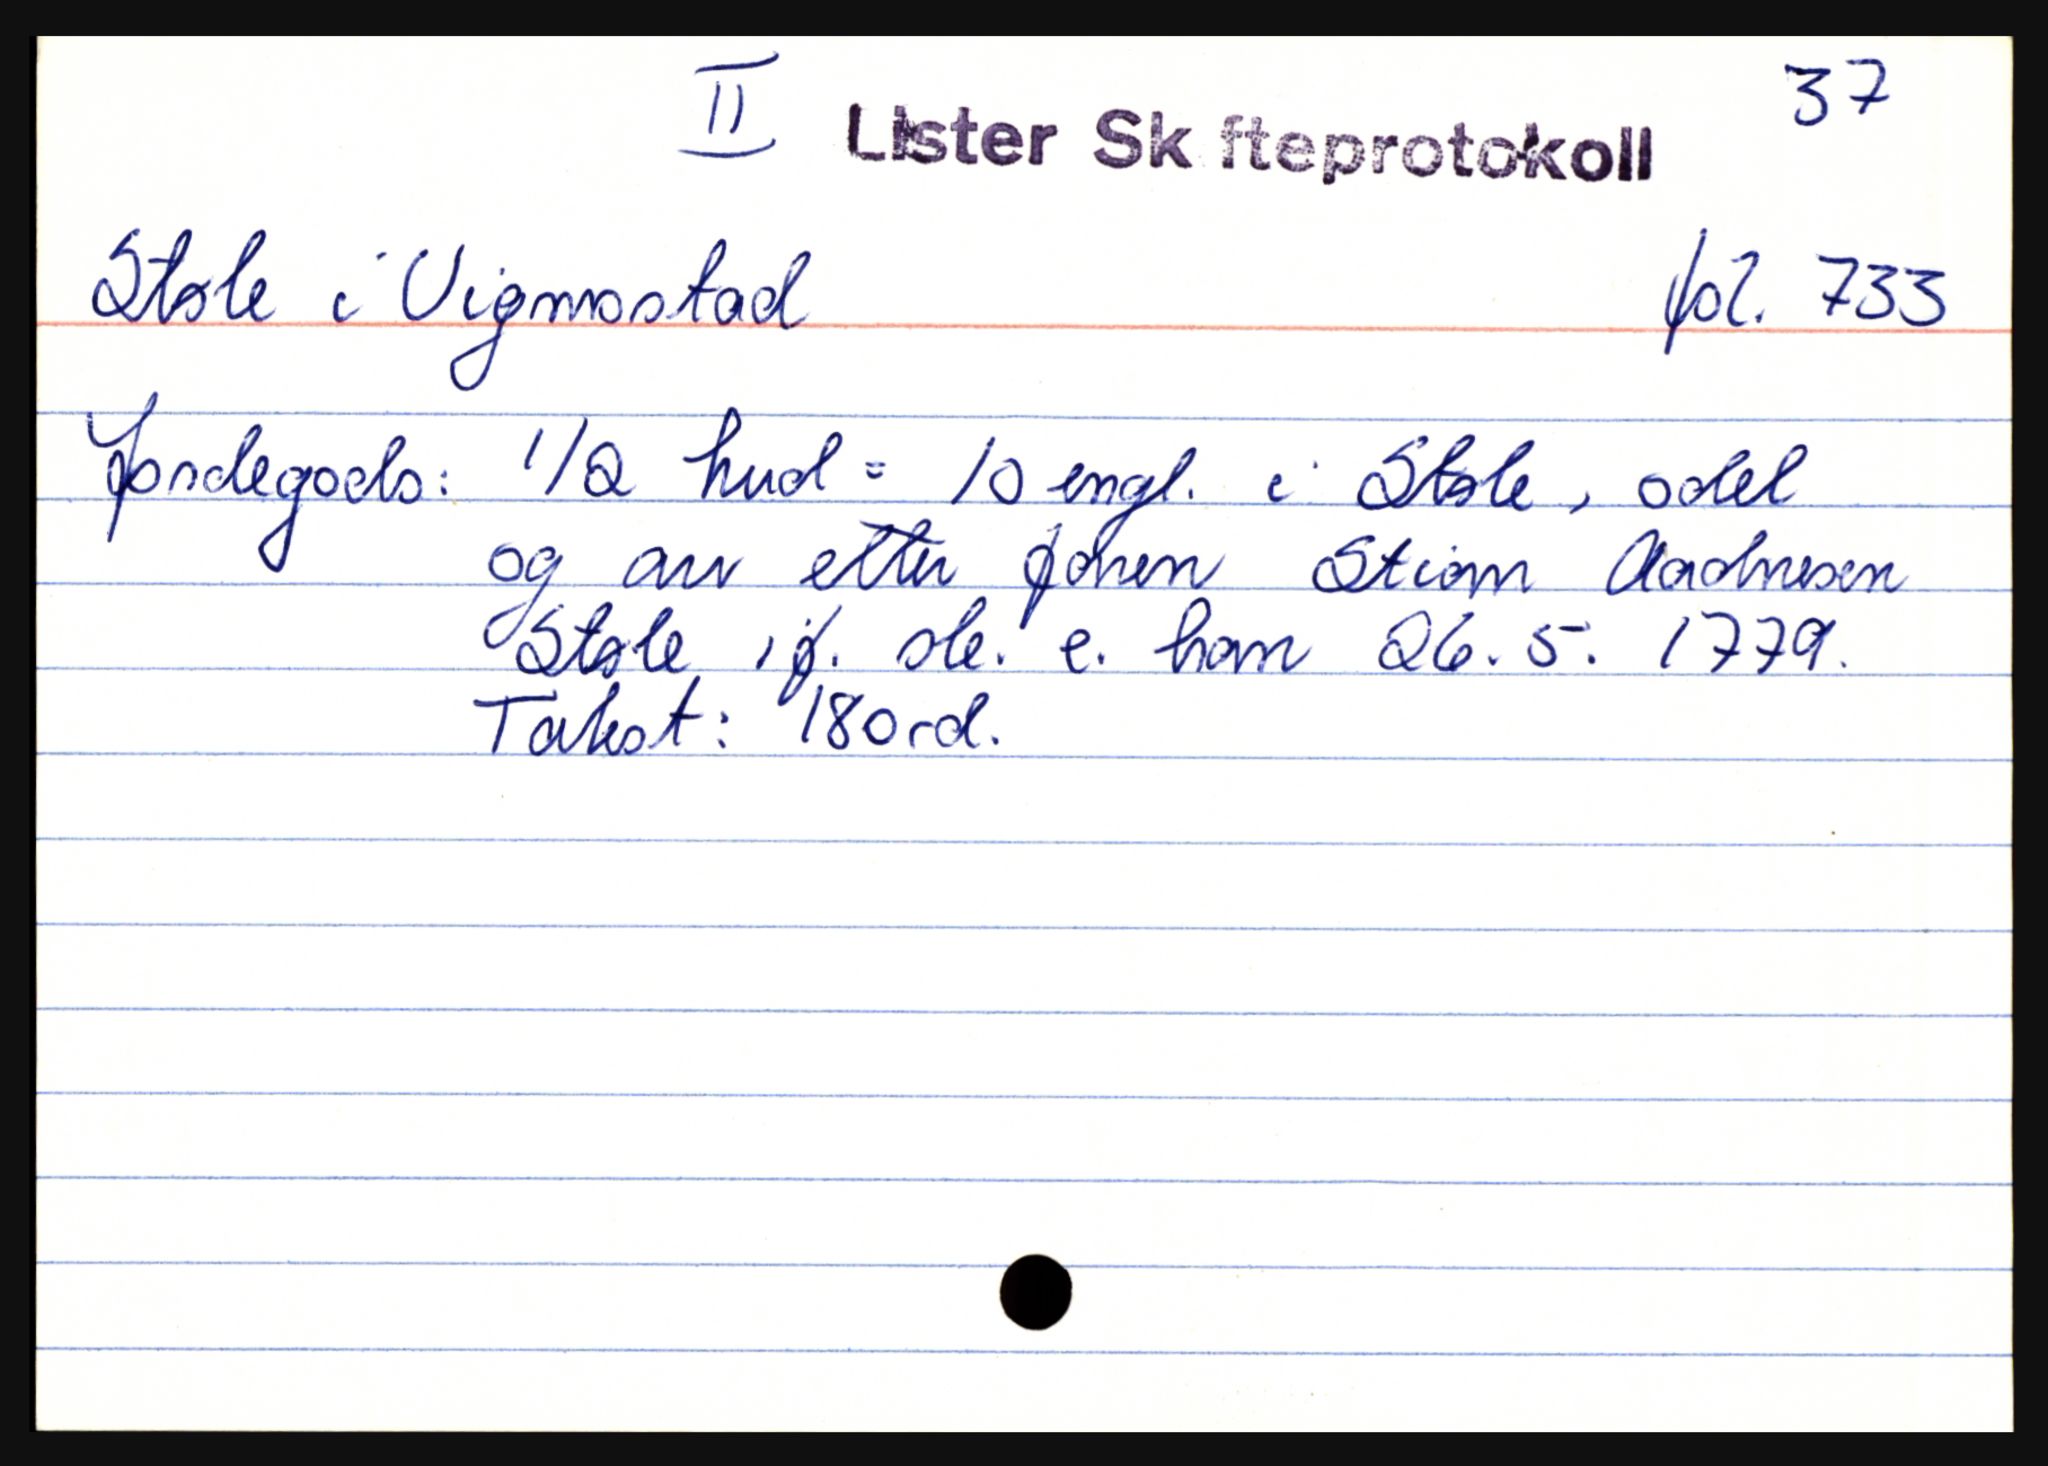 II Lister Skifteprotokoll 37
Støle i Vigmostad fol. 733
Jordegods: 1/2 hud = 10 engl. i Støle, odel
og arv etter faren Stian Aadnesen
Støle, jf. sk. e. ham 26.5.1779.
Takst: 180 rd.